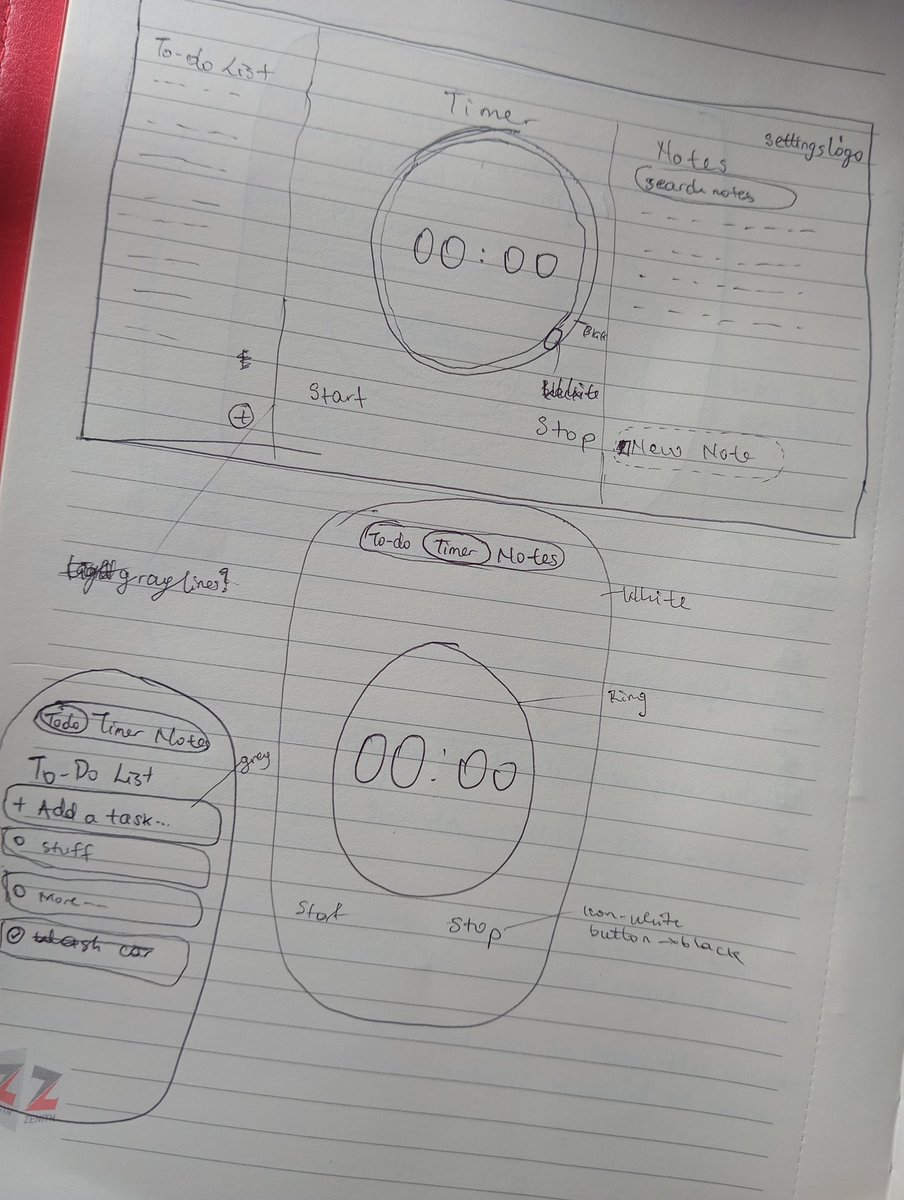 To-do List
Timer
settings logo
Notes
search notes
00:00
Start
Stop
+
New Note
gray lines?
To-do Timer Notes
White
Ring
00:00
Start
Stop
icon-white
button→black
Todo Timer Notes
grey
To-Do List
+ Add a task...
stuff
More---
car
ZENITH